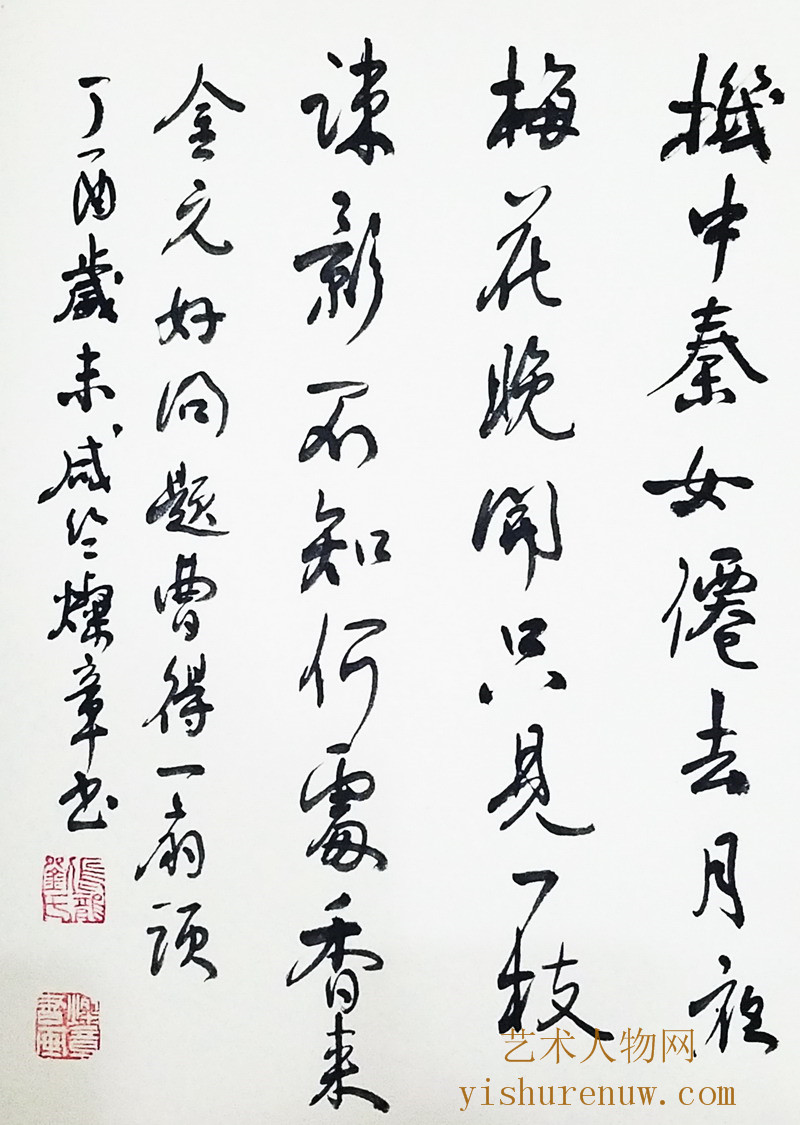 機中秦女僊去月底
梅花晚開只見一枝
疎影不知何處香来
金元好问題曹得一扇頭
丁酉歲末咸燦章书
艺术人物网
yishurenuw.com